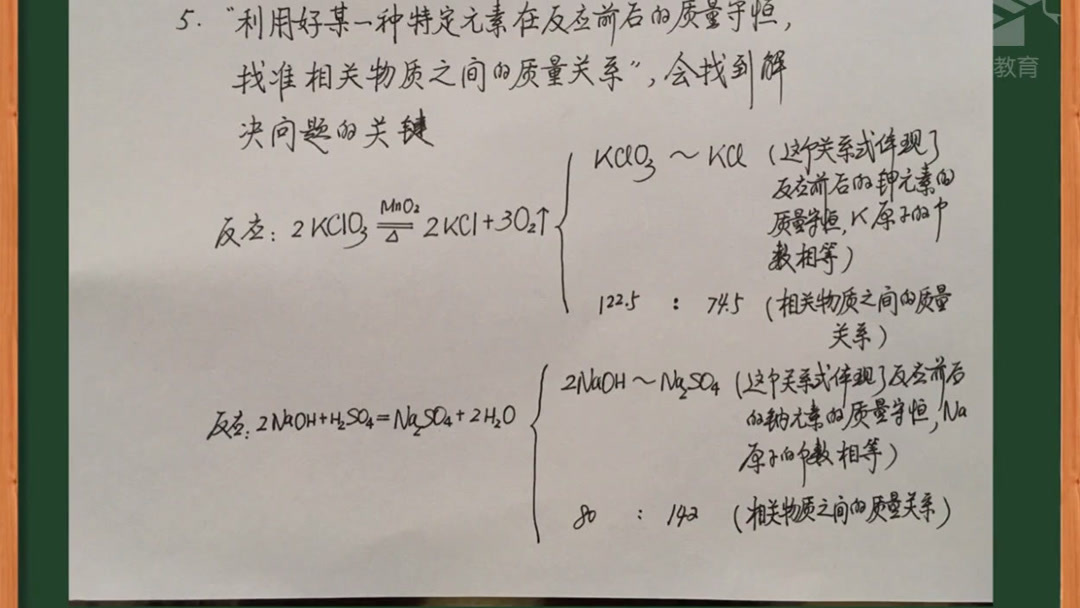 5. “利用好某一种特定元素在反应前后的质量守恒,
找准相关物质之间的质量关系”, 会找到解
决问题的关键
反应: 2KClO₃ =MnO₂/△= 2KCl+3O₂↑
KClO₃ ~ KCl (这个关系式体现了
反应前后的钾元素的
质量守恒, K原子的个
数相等)
122.5 : 74.5 (相关物质之间的质量
关系)
反应: 2NaOH+H₂SO₄=Na₂SO₄+2H₂O
2NaOH ~ Na₂SO₄ (这个关系式体现了反应前后
的钠元素的质量守恒, Na
原子的个数相等)
80 : 142 (相关物质之间的质量关系)
教育